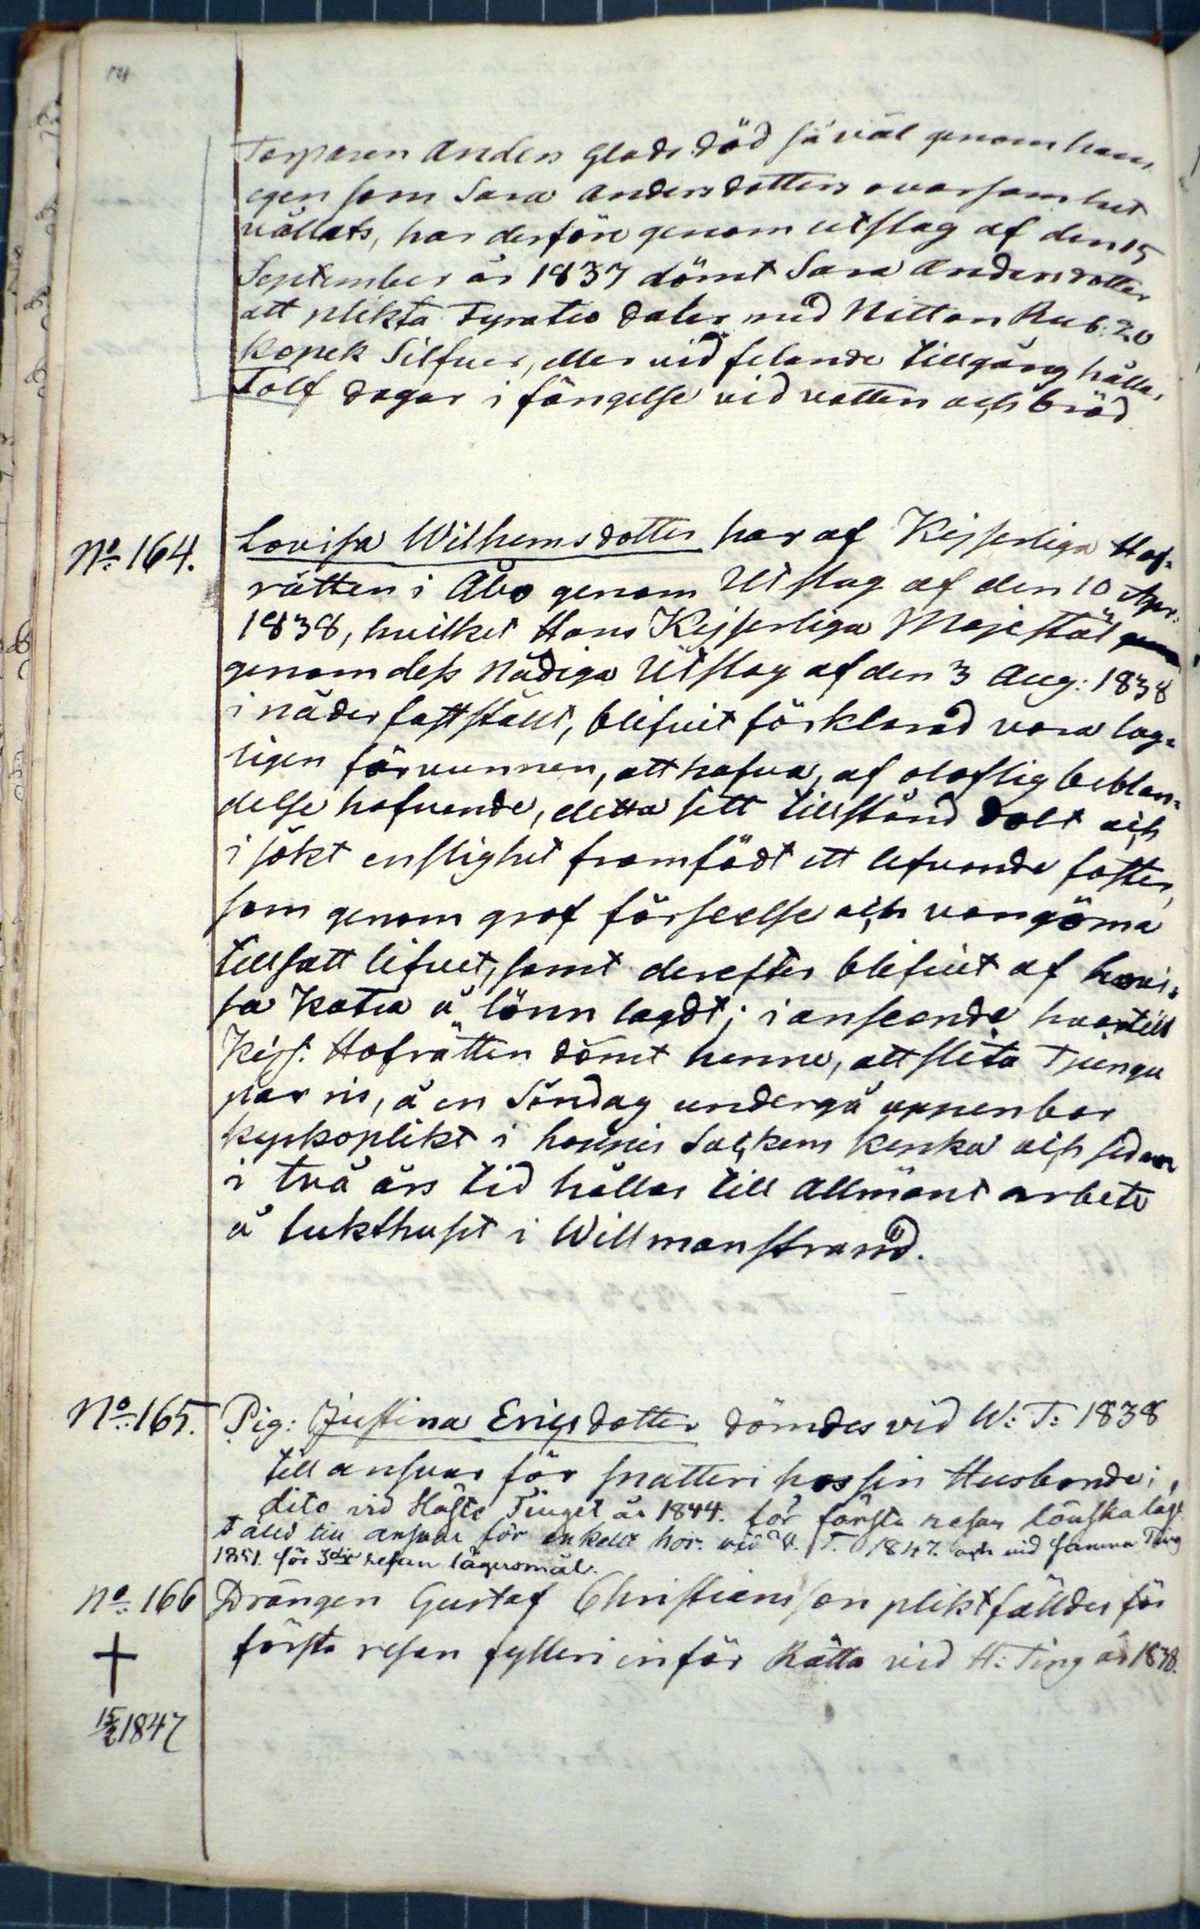 Torparen Anders Glads död så väl genom hans
egen som Sara Andersdotters ovarsamhet
vållats, har derföre genom utslag af den 15
September år 1837 dömt Sara Andersdotter
att plikta Fyratio daler med Nitton Rub: 20
Kopek Silfver, eller vid felande tillgång hållas
Tolf dagar i fängelse vid vatten och bröd
No 164. Lovisa Wilhemsdotter har af Kejserliga Hof-
rätten i Åbo genom Utslag af den 10 Apr:
1838, hvilket Hans Kejserliga Majestät
genom dess Nådiga Utslag af den 3 Aug: 1838
i nåder fastställt, blifvit förklarad vara lag-
ligen förvunnen, att hafva, af oloflig beblan-
delse hafvande, detta sitt tillstånd dolt och
i sökt enslighet framfödt ett lefvande foster,
som genom grof förseelse och vangöma
tillsatt lifvet, samt derefter blifvit af Lovi-
sa å lönn lagdt; i anseende hvartill
Kejs. Hofrätten dömt henne, att slita Tjugu
par ris, å en Söndag undergå uppenbar
kyrkoplikt i hennes Sockens kyrka och sedan
i två års tid hållas till allmänt arbete
å tukthuset i Willmanstrand.
No 165. Pig: Justina Ericsdotter dömdes vid W: T: 1838
till ansvar för snatteri hos sin Husbonde;
dito vid Höste Tinget år 1844. för första resan lönskaläge
Fälld till ansvar för enkelt hor. vid V. T. 1847. och vid samma Ting
1851. för 3dje resan lägersmål.
No 166 Drängen Gustaf Christiansson pliktfälldes för
första resan fylleri inför Rätta vid H: Ting år 1838.
15/2 1847